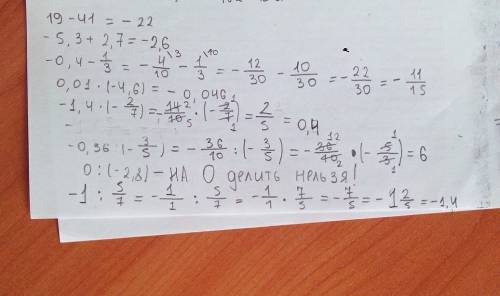 19 - 41 = - 22
- 5,3 + 2,7 = - 2,6
- 0,4 - 1/3 = - 4/10 \3 - 1/3 \10 = - 12/30 - 10/30 = - 22/30 = - 11/15
0,01 · (-4,6) = - 0,046
- 1,4 · (- 2/7) = - 14/10 · (- 2/7) = 2/5 = 0,4
- 0,36 : (- 3/5) = - 36/10 : (- 3/5) = - 36/10 · (- 5/3) = 6
0 : (-2,8) - НА 0 делить нельзя!
- 1 : 5/7 = - 1/1 : 5/7 = - 1/1 · 7/5 = - 7/5 = - 1 2/5 = - 1,4